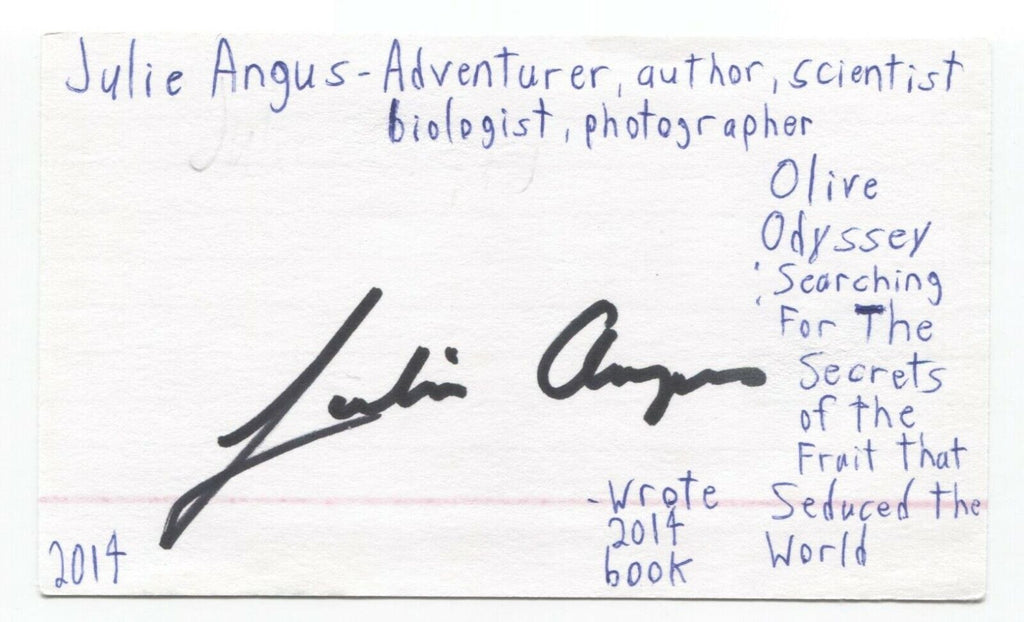 Julie Angus - Adventurer, author, scientist
biologist, photographer
Olive
Odyssey
: Searching
For The
Secrets
of the
Fruit that
Seduced the
World
Julie Angus
- Wrote
2014
book
2014